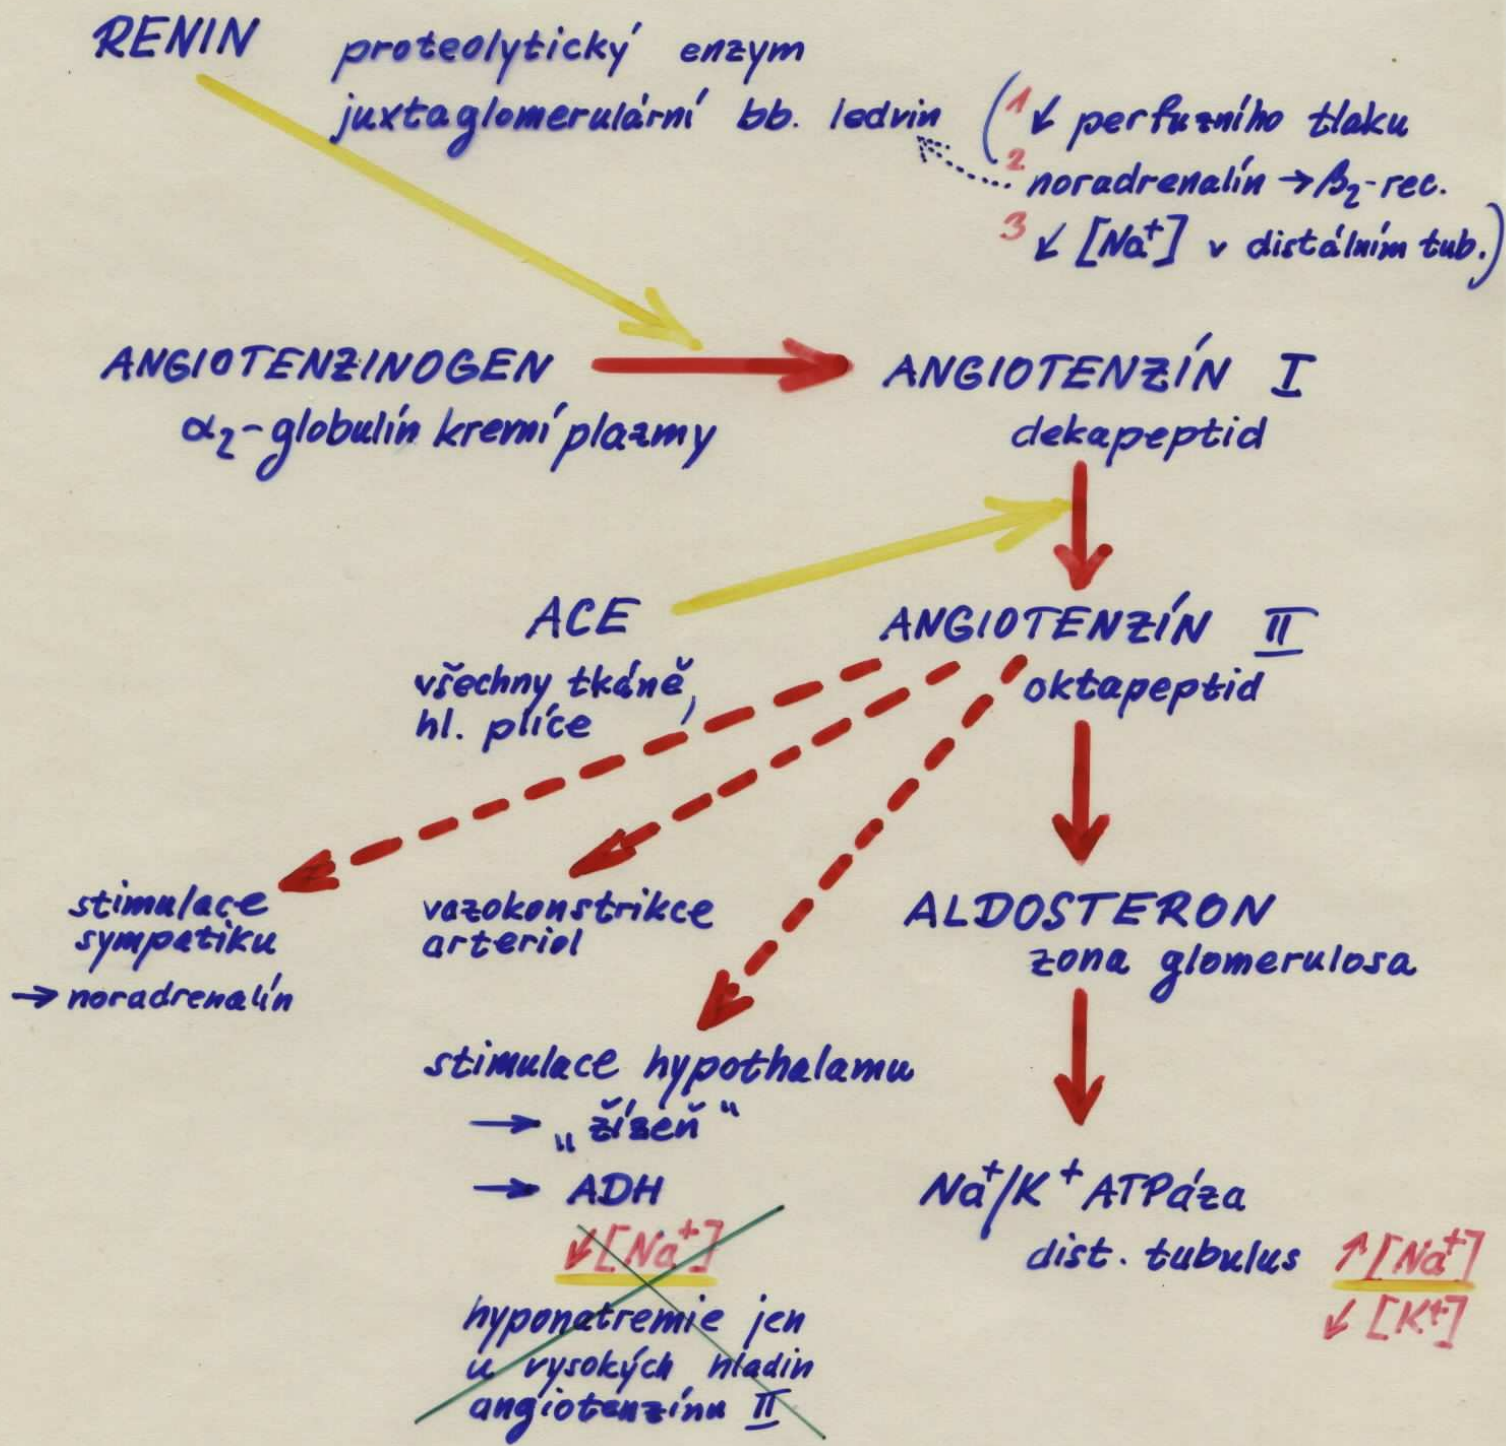 RENIN proteolytický enzym
juxtaglomerulární bb. ledvin
(1 ↙ perfuzního tlaku
2 noradrenalín → β₂-rec.
3 ↙ [Na⁺] v distálním tub.)
ANGIOTENZINOGEN
α₂-globulín krevní plazmy
ANGIOTENZÍN I
dekapeptid
ACE
všechny tkáně,
hl. plíce
ANGIOTENZÍN II
oktapeptid
stimulace
sympatiku
→ noradrenalín
vazokonstrikce
arteriol
stimulace hypothalamu
→ „žízeň“
→ ADH
↙ [Na⁺]
hyponatremie jen
u vysokých hladin
angiotenzínu II
ALDOSTERON
zona glomerulosa
Na⁺/K⁺ ATPáza
dist. tubulus ↗ [Na⁺]
↙ [K⁺]